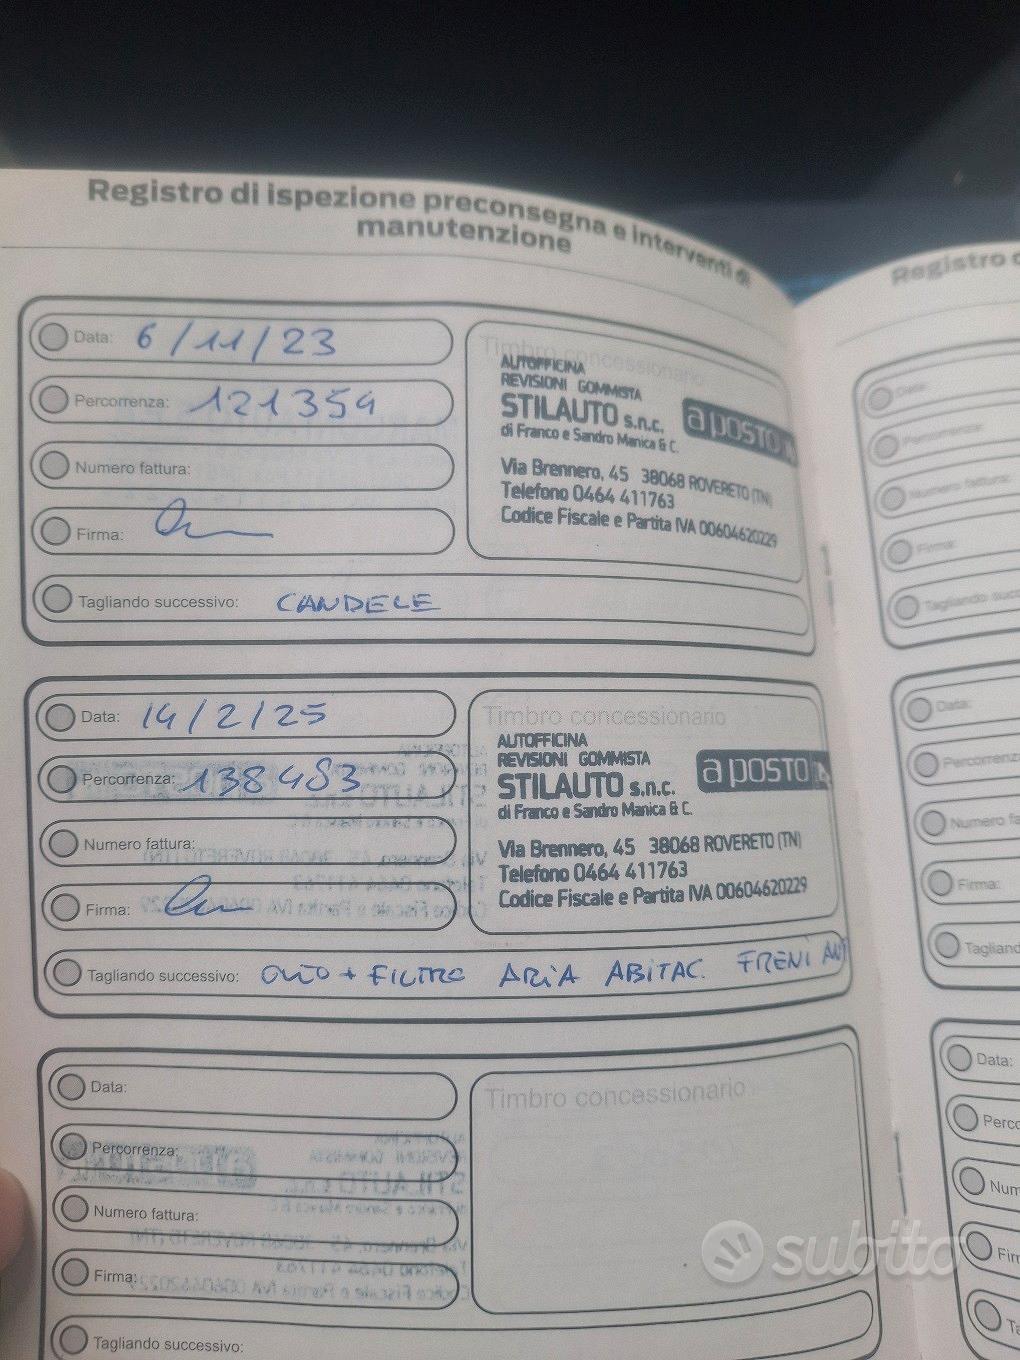 Registro di ispezione preconsegna e interventi di
manutenzione
Data: 6/11/23
Percorrenza: 121359
Numero fattura:
Firma:
Tagliando successivo: CANDELE
Timbro concessionario
AUTOFFICINA
REVISIONI GOMMISTA
STILAUTO s.n.c.
di Franco e Sandro Manica & C.
a posto
Via Brennero, 45 38068 ROVERETO (TN)
Telefono 0464 411763
Codice Fiscale e Partita IVA 00604620229
Data: 14/2/25
Percorrenza: 138483
Numero fattura:
Firma:
Tagliando successivo: OLIO + FILTRO ARIA ABITAC. FRENI ANT
Timbro concessionario
AUTOFFICINA
REVISIONI GOMMISTA
STILAUTO s.n.c.
di Franco e Sandro Manica & C.
a posto
Via Brennero, 45 38068 ROVERETO (TN)
Telefono 0464 411763
Codice Fiscale e Partita IVA 00604620229
Data:
Percorrenza:
Numero fattura:
Firma:
Tagliando successivo:
Timbro concessionario
Registro
Data:
Percorrenza:
Numero fattura:
Firma:
Tagliando succ
Data:
Percorrenz
Numero fa
Firma:
Tagliand
Data:
Perco
Num
Firm
Ta
subito